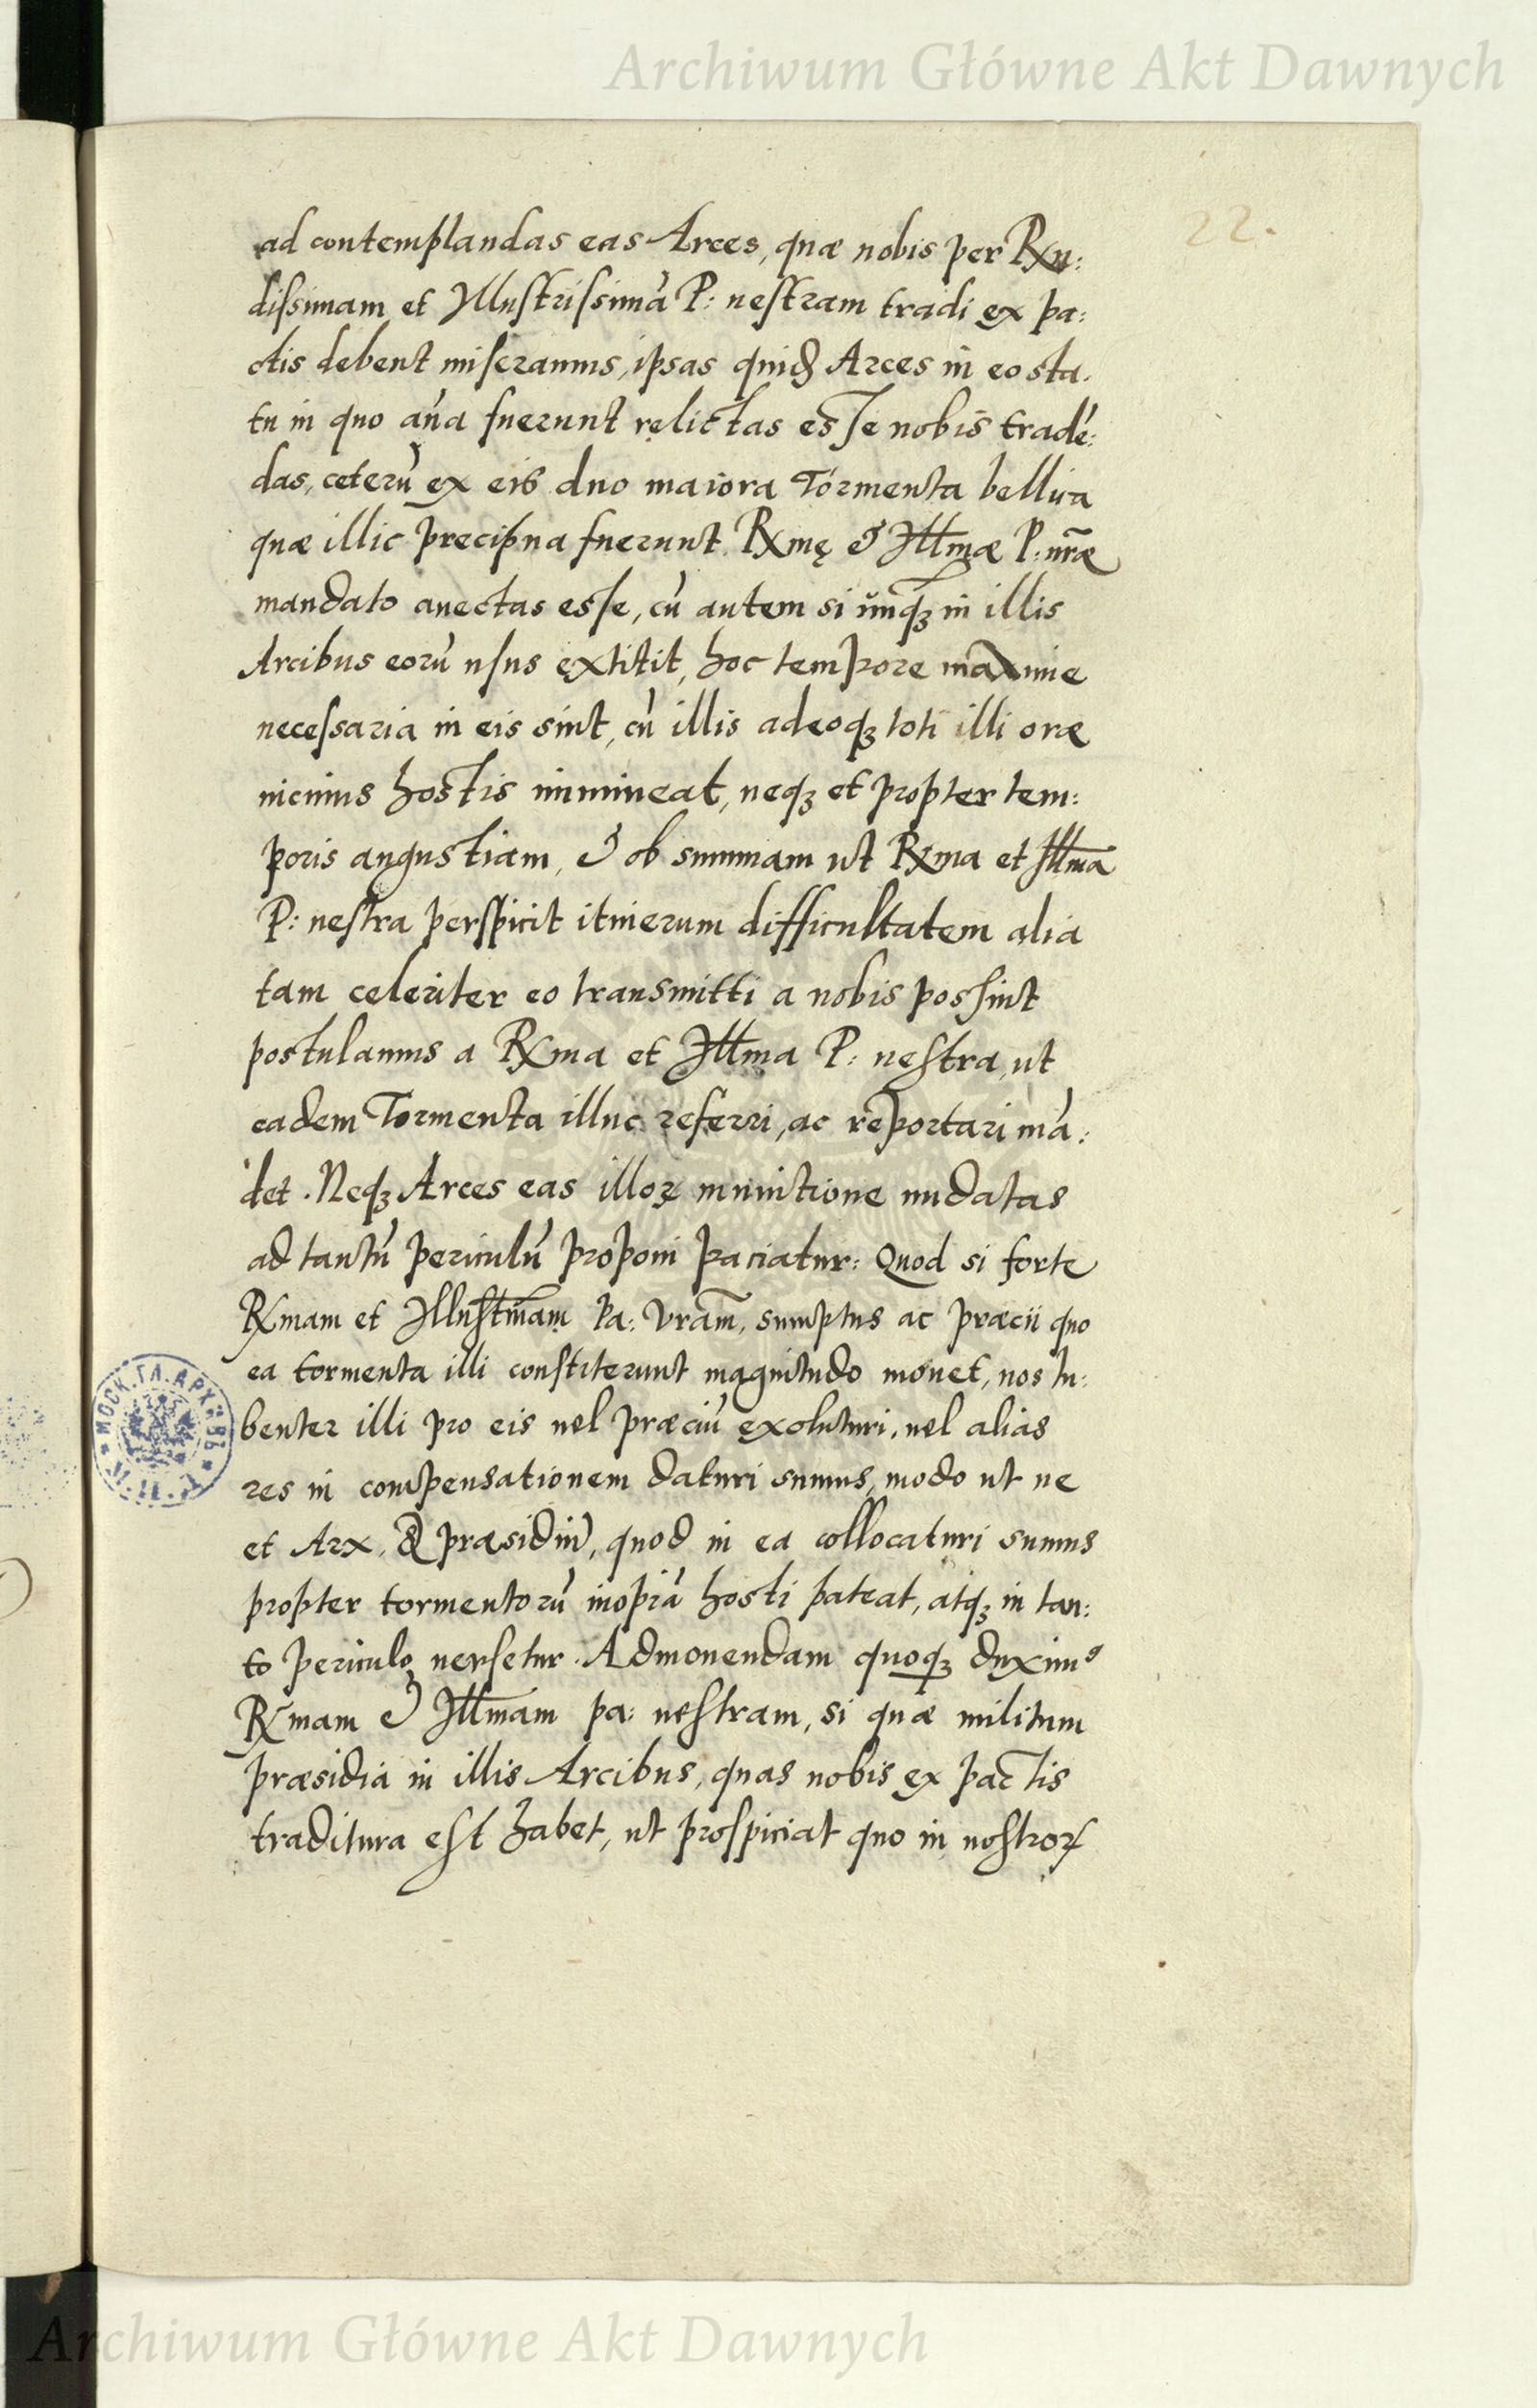 Archiwum Główne Akt Dawnych
22.
ad contemplandas eas Arces, quæ nobis per Rxu:
dissimam et Illustrissimā P: vestram tradi ex pa:
ctis debent miseramus, ipsas quidē Arces in eo sta.
tu in quo antea fuerunt relictas esse nobis tradē:
das, ceterū ex eis duo maiora Tormenta bellica
quæ illic precipua fuerunt Rxmę & Illmæ P: vr̃æ
mandato auectas esse, cū autem si unqꝫ in illis
Arcibus eorū usus extitit, hoc tempore maxime
necessaria in eis sint, cū illis adeoqꝫ toti illi oræ
vicinus hostis immineat, neqꝫ et propter tem:
poris angustiam, & ob summam ut Rxma et Illma
P: vestra perspicit itinerum difficultatem alia
tam celeriter eo transmitti a nobis possint
postulamus a Rxma et Illma P: vestra, ut
eadem Tormenta illuc referri, ac reportari mā:
det. Neqꝫ Arces eas illoꝝ munitione nudatas
ad tantū periculū proponi paciatur: Quod si forte
Rxmam et Illustm̃am Pa: Vram̃, sumptus ac præcii quo
ea tormenta illi constiterunt magnitudo mouet, nos lu:
benter illi pro eis uel præciū exoluturi, uel alias
res in compensationem daturi sumus, modo ut ne
et Arx, & præsidiū, quod in ea collocaturi sumus
propter tormentorū inopiā hosti pateat, atqꝫ in tan:
to periculo uersetur. Admonendam quoqꝫ duximꝰ
Rxmam & Illmam pa: uestram, si quæ militum
præsidia in illis Arcibus, quas nobis ex pactis
traditura est habet, ut prospiciat quo in nostroꝝ
МОСК. ГЛ. АРХИВЪ
Archiwum Główne Akt Dawnych